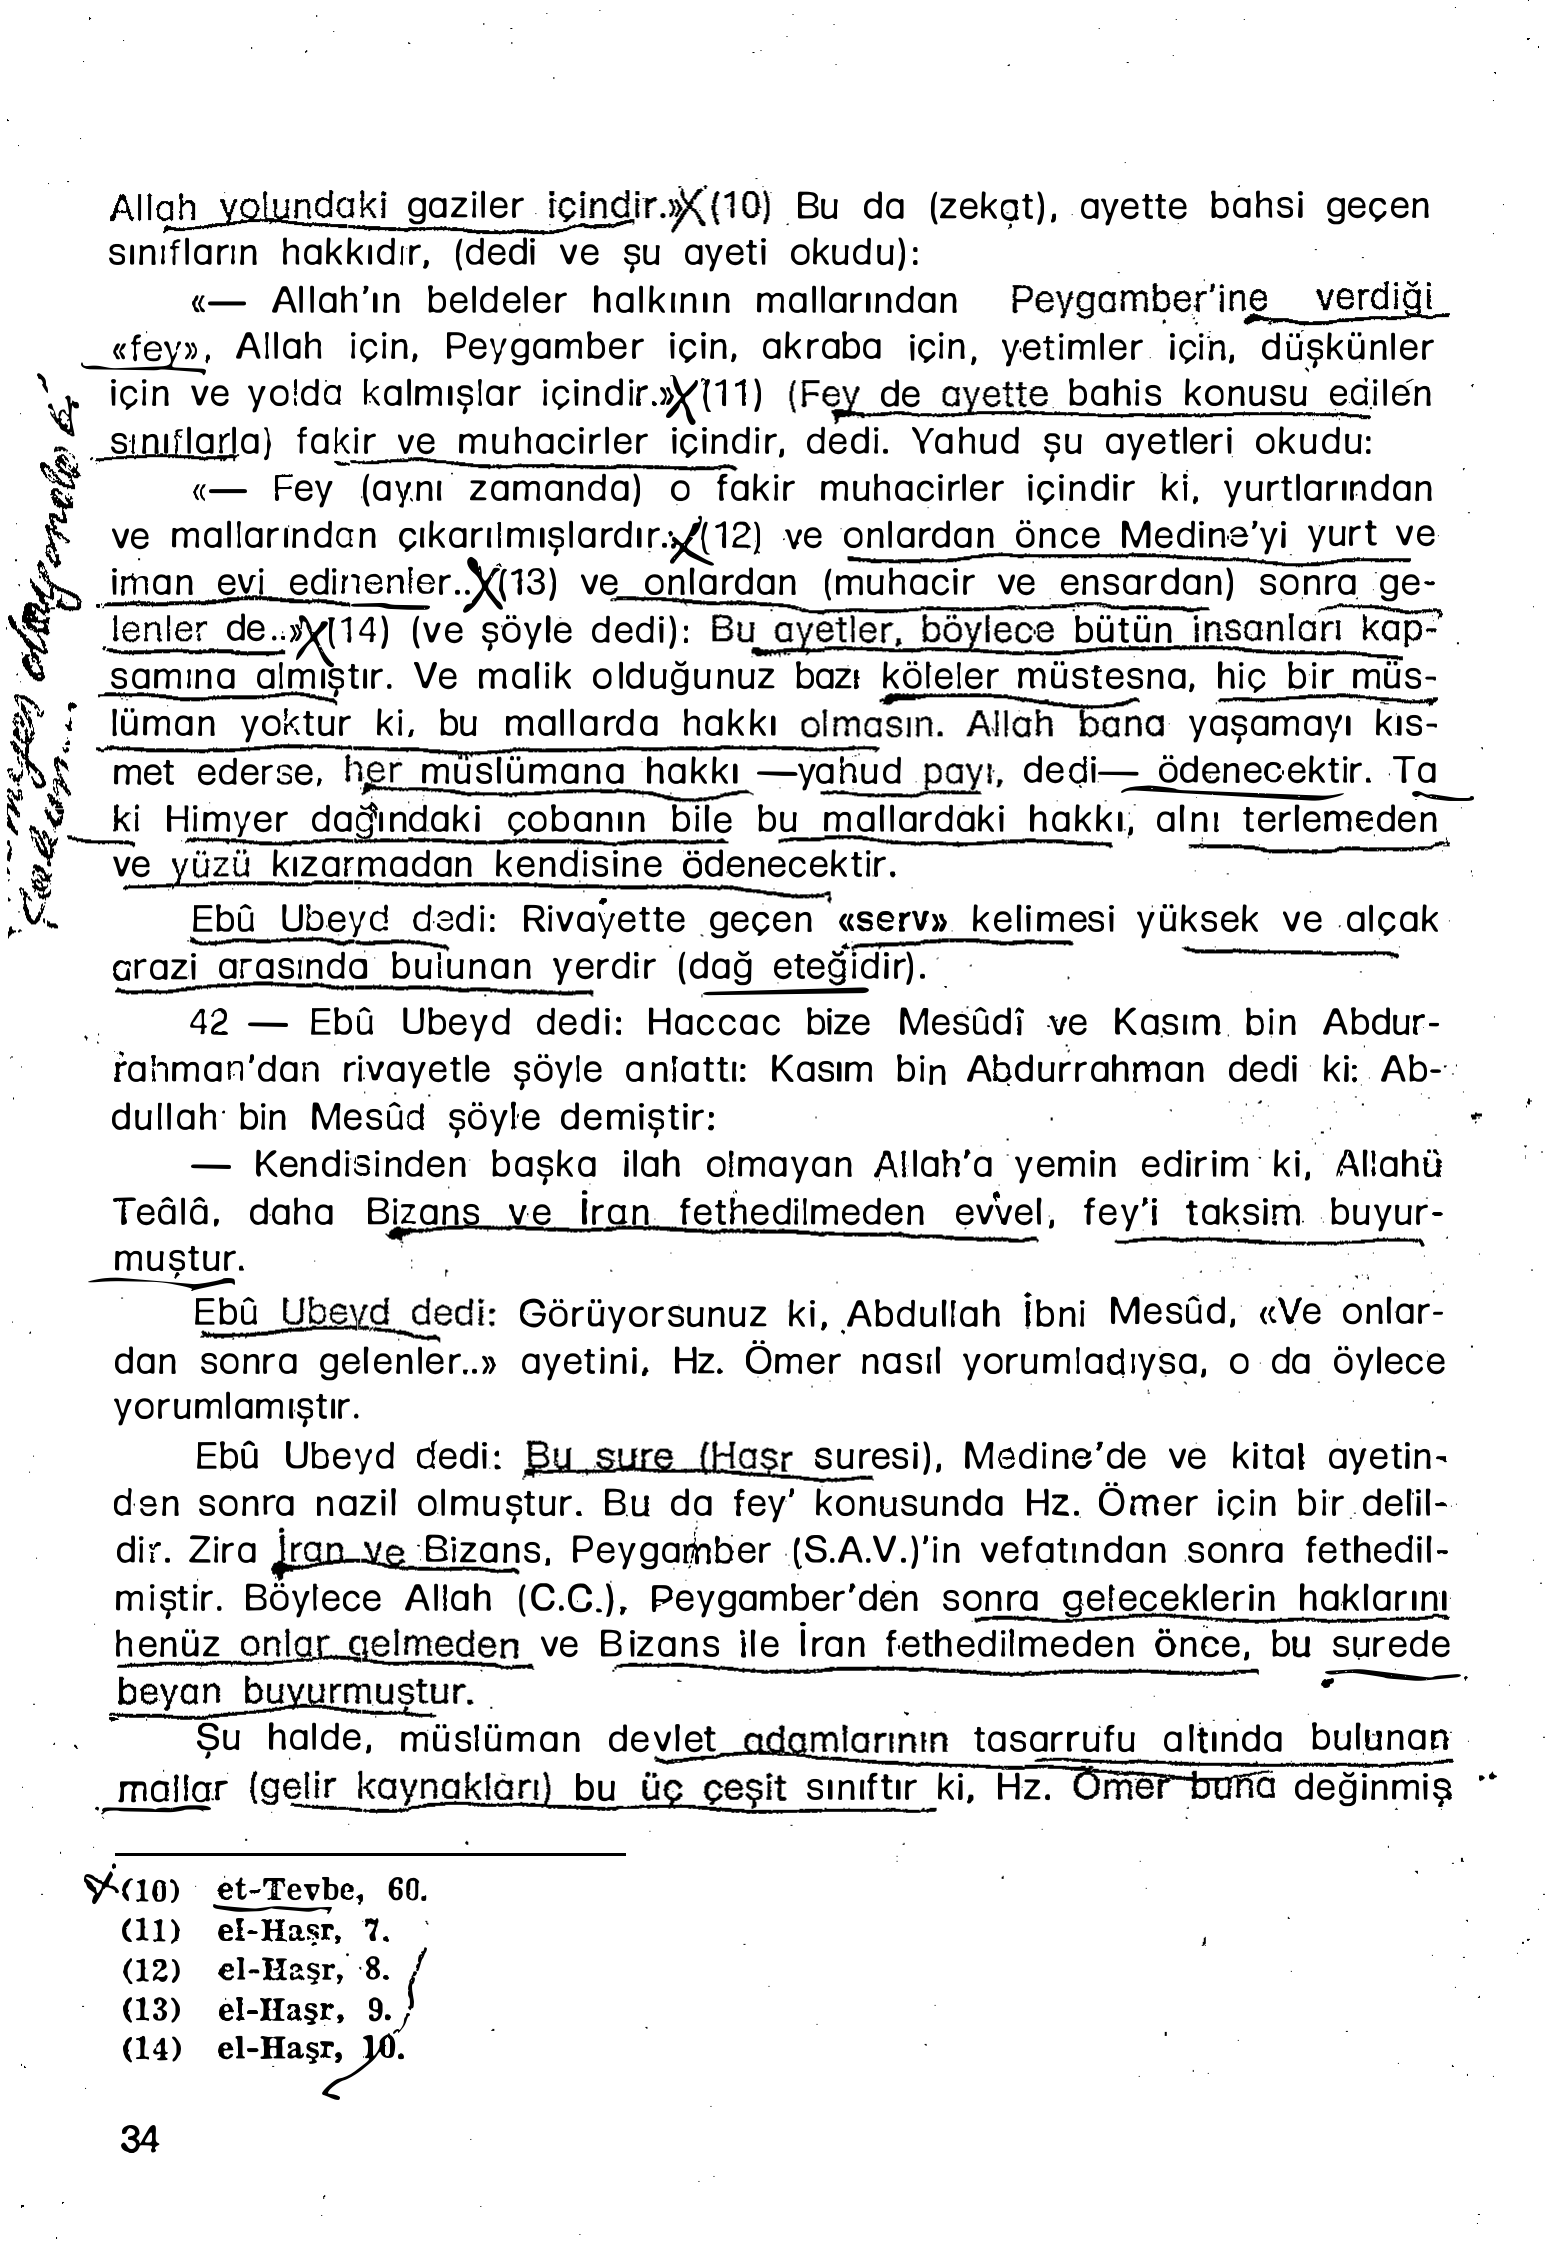 Allah yolundaki gaziler içindir.»(10) Bu da (zekat), ayette bahsi geçen
sınıfların hakkıdır, (dedi ve şu ayeti okudu):
«— Allah'ın beldeler halkının mallarından Peygamber'ine verdiği
«fey», Allah için, Peygamber için, akraba için, yetimler için, düşkünler
için ve yolda kalmışlar içindir.»(11) (Fey de ayette bahis konusu edilen
sınıflarla) fakir ve muhacirler içindir, dedi. Yahud şu ayetleri okudu:
«— Fey (aynı zamanda) o fakir muhacirler içindir ki, yurtlarından
ve mallarından çıkarılmışlardır.»(12) ve onlardan önce Medine'yi yurt ve
iman evi edinenler..»(13) ve onlardan (muhacir ve ensardan) sonra ge-
lenler de..»(14) (ve şöyle dedi): Bu ayetler, böylece bütün insanları kap-
samına almıştır. Ve malik olduğunuz bazı köleler müstesna, hiç bir müs-
lüman yoktur ki, bu mallarda hakkı olmasın. Allah bana yaşamayı kıs-
met ederse, her müslümana hakkı —yahud payı, dedi— ödenecektir. Ta
ki Himyer dağındaki çobanın bile bu mallardaki hakkı, alnı terlemeden
ve yüzü kızarmadan kendisine ödenecektir.
Ebû Ubeyd dedi: Rivayette geçen «serv» kelimesi yüksek ve alçak
arazi arasında bulunan yerdir (dağ eteğidir).
42 — Ebû Ubeyd dedi: Haccac bize Mesûdî ve Kasım bin Abdur-
rahman'dan rivayetle şöyle anlattı: Kasım bin Abdurrahman dedi ki: Ab-
dullah bin Mesûd şöyle demiştir:
— Kendisinden başka ilah olmayan Allah'a yemin edirim ki, Allahü
Teâlâ, daha Bizans ve İran fethedilmeden evvel, fey'i taksim buyur-
muştur.
Ebû Ubeyd dedi: Görüyorsunuz ki, Abdullah İbni Mesûd, «Ve onlar-
dan sonra gelenler..» ayetini, Hz. Ömer nasıl yorumladıysa, o da öylece
yorumlamıştır.
Ebû Ubeyd dedi: Bu sure (Haşr suresi), Medine'de ve kital ayetin-
den sonra nazil olmuştur. Bu da fey' konusunda Hz. Ömer için bir delil-
dir. Zira İran ve Bizans, Peygamber (S.A.V.)'in vefatından sonra fethedil-
miştir. Böylece Allah (C.C.), Peygamber'den sonra geleceklerin haklarını
henüz onlar gelmeden ve Bizans ile İran fethedilmeden önce, bu surede
beyan buyurmuştur.
Şu halde, müslüman devlet adamlarının tasarrufu altında bulunan
mallar (gelir kaynakları) bu üç çeşit sınıftır ki, Hz. Ömer buna değinmiş
(10) et-Tevbe, 60.
(11) el-Haşr, 7.
(12) el-Haşr, 8.
(13) el-Haşr, 9.
(14) el-Haşr, 10.
34